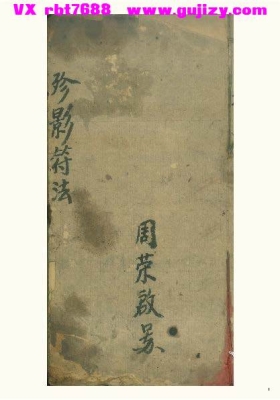 VX rbt7688   www.gujizy.com
珍影符法
周荣啟